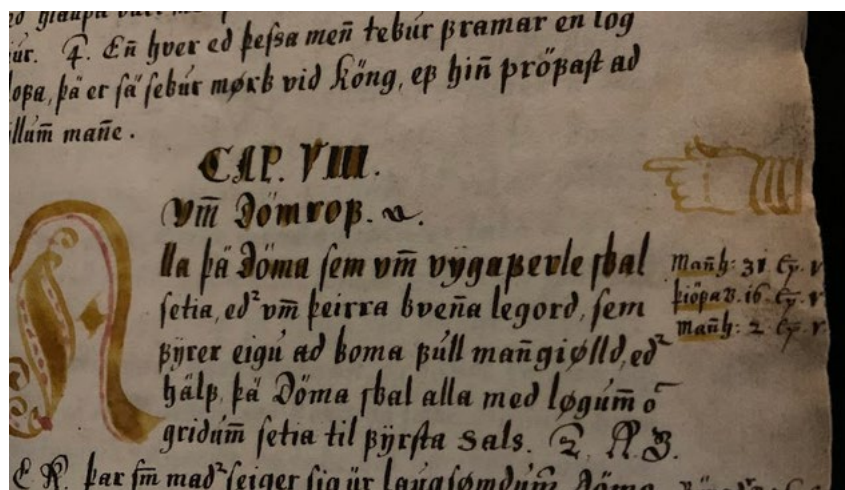 úr. 4. En̄ hver ed þeſsa men̄ tekúr framar en log
lofa, þä er ſä ſekúr mørk vid Köng, ef hin̄ pröfaſt ad
illum̄ man̄e.
CAP. VIII.
Vm̄ Dömrof.
Alla þä Döma ſem vm̄ výgaferle ſkal
ſetia, ed² vm̄ þeirra kven̄a legord, ſem
fýrer eigú ad koma fúll man̄giølld, ed²
hälf, þä Döma ſkal alla med løgúm̄ ō
gridúm̄ ſetia til fýrſta Sals.
þar ſm̄ mad² ſeiger ſig úr laugſømdúm̄ Döma
Man̄h: 31 Cp. v
þiöfa B. 16. Cp. v
Man̄h: 2 Cp. v.